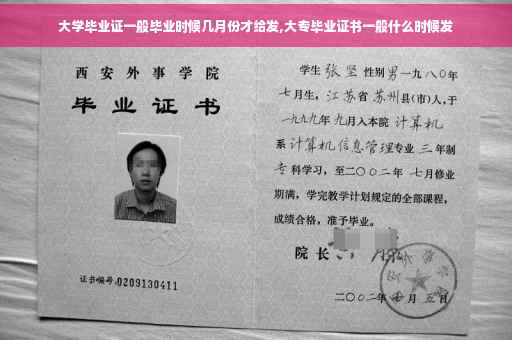 大学毕业证一般毕业时候几月份才给发,大专毕业证书一般什么时候发
西安外事学院
毕业证书
证书编号:0209130411
学生 张坚 性别 男 一九八〇年
七月生, 江苏省 苏州 县(市)人,于
一九九九年 九月入本院 计算机
系 计算机信息管理 专业 三 年制
专科学习,至二〇〇二年 七月修业
期满,学完教学计划规定的全部课程,
成绩合格,准予毕业。
院长
二〇〇二年 月 五日